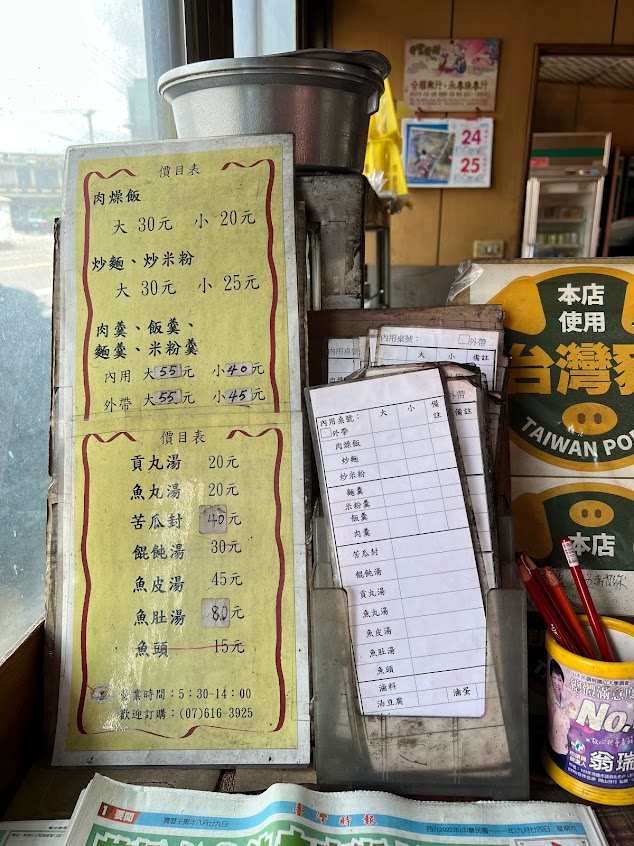 價目表
肉燥飯
大 30元 小 20元
炒麵、炒米粉
大 30元 小 25元
肉羹、飯羹、
麵羹、米粉羹
內用 大55元 小40元
外帶 大55元 小45元
價目表
貢丸湯 20元
魚丸湯 20元
苦瓜封 40元
餛飩湯 30元
魚皮湯 45元
魚肚湯 80元
魚頭 15元
營業時間：5：30-14：00
歡迎訂購：(07)616-3925
內用桌號： 外帶
大 小 備註
內用桌號：
外帶
大 小 備註
肉燥飯
炒麵
炒米粉
麵羹
米粉羹
飯羹
肉羹
苦瓜封
餛飩湯
貢丸湯
魚丸湯
魚皮湯
魚肚湯
魚頭
滷料
油豆腐 滷蛋
24
25
本店
使用
台灣豬
TAIWAN POR
本店
No.
翁瑞
1 要聞
臺灣時報